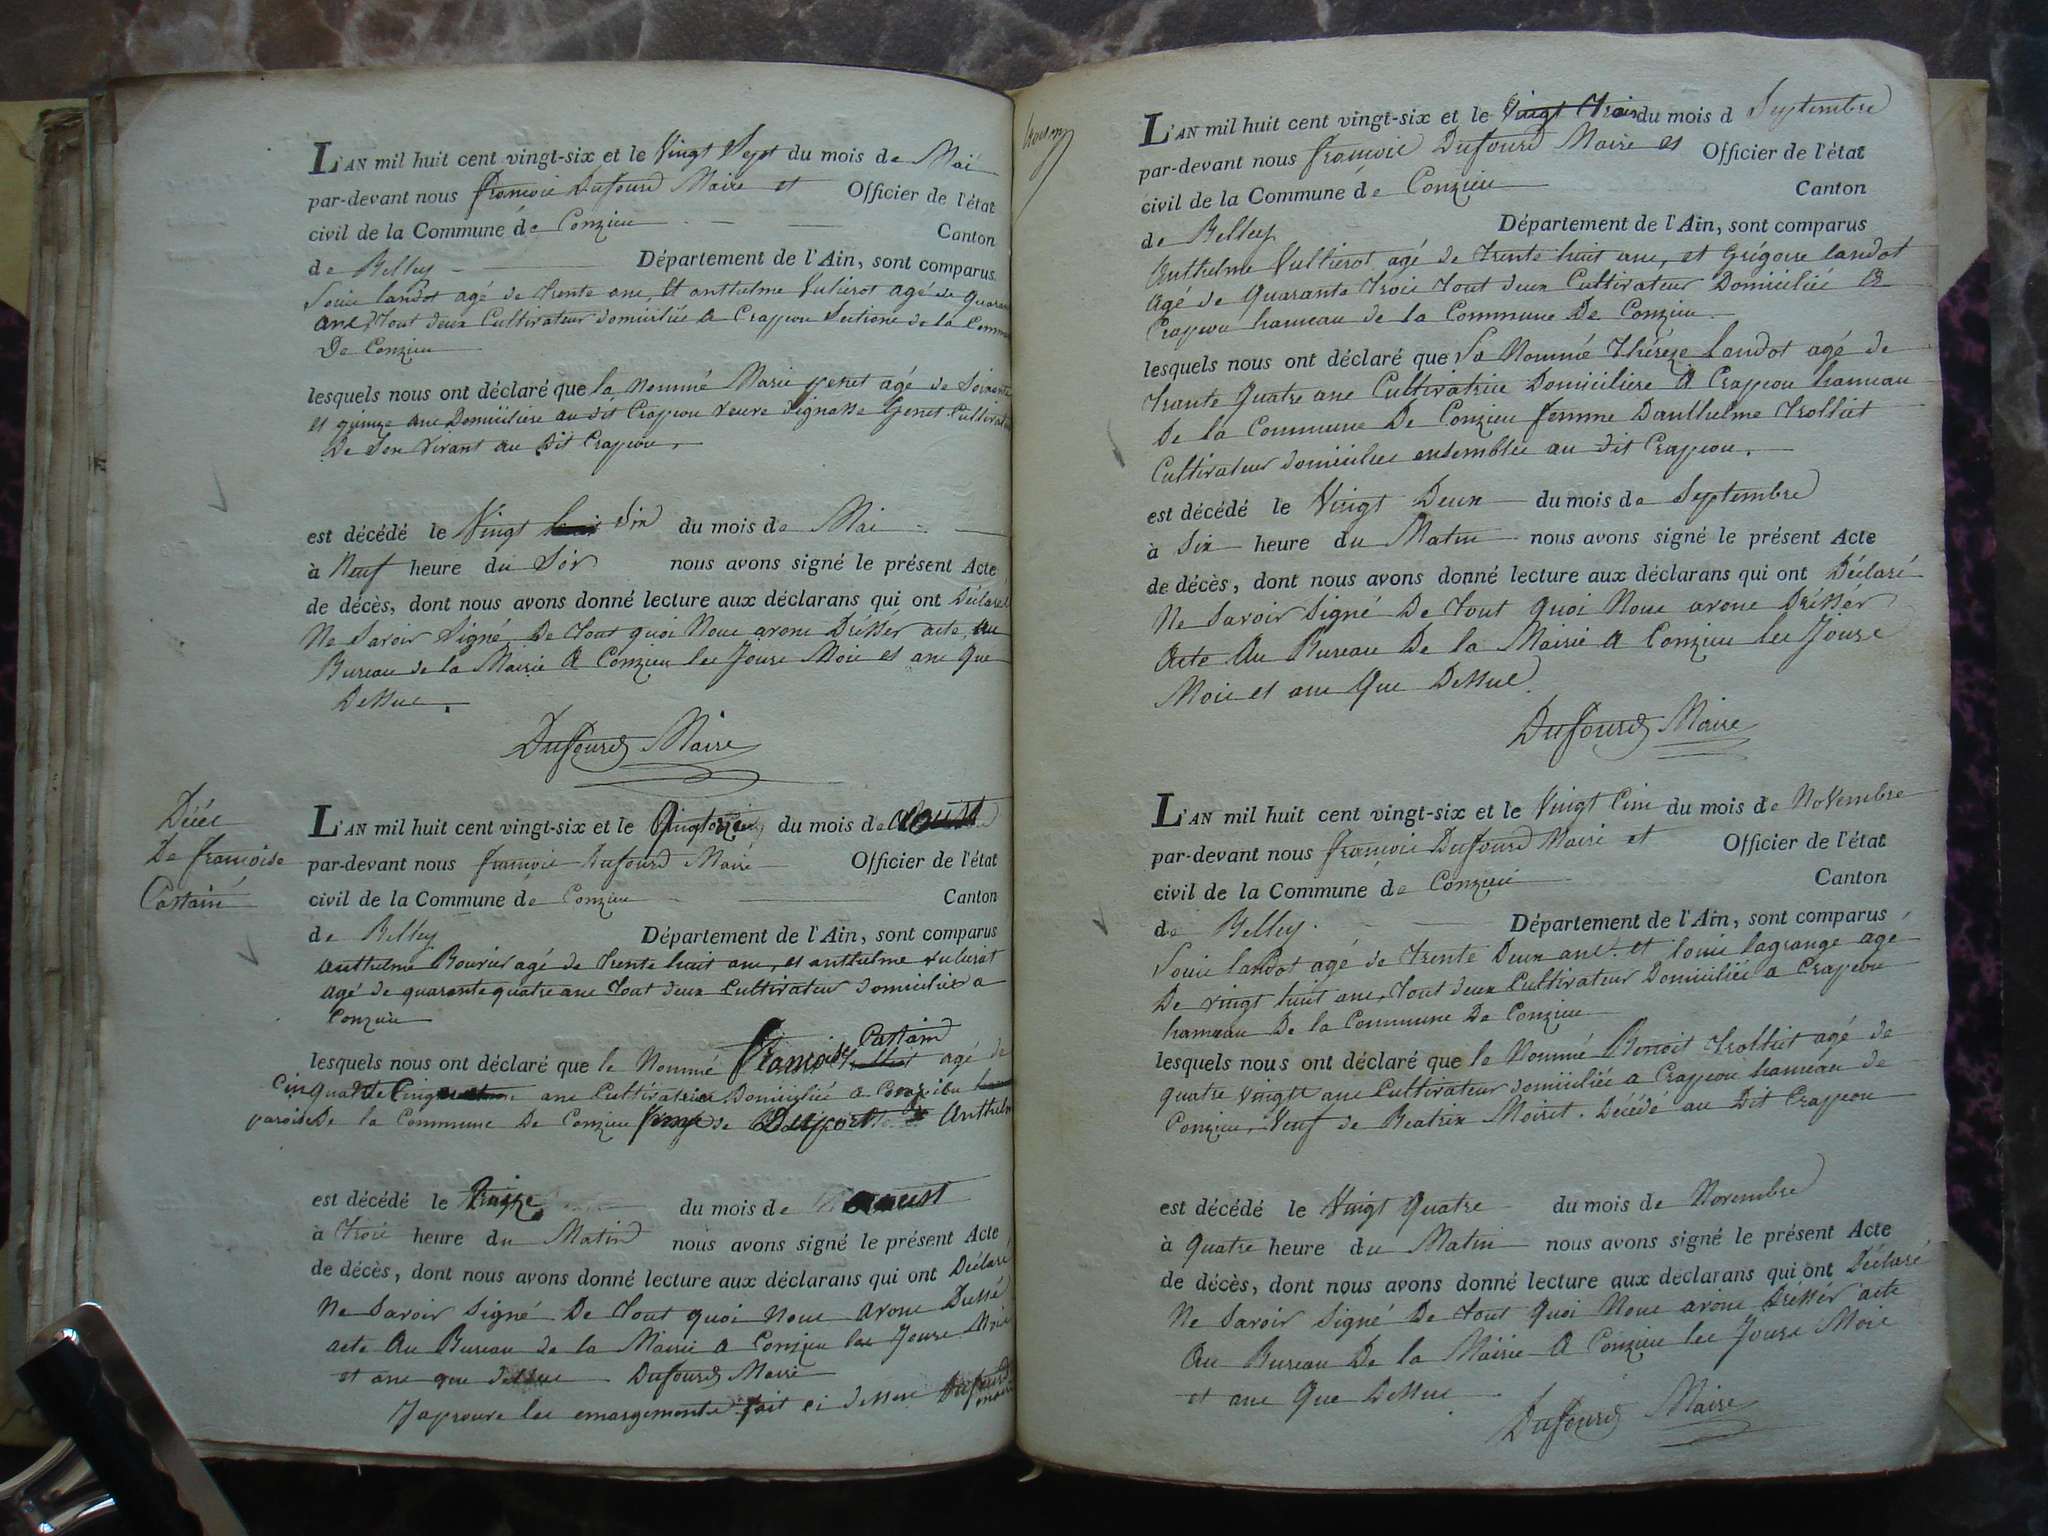 L'AN mil huit cent vingt-six et le Vingt Sept du mois de Mai
par-devant nous françoie Dufourd Maire et Officier de l'état
civil de la Commune de Conzieu Canton
de Belley Département de l'Ain, sont comparus
Louie landot agé de trente ane, et anthelme Vulierot agé de quaran
ane, tout deux Cultivateur domicilié a Crapeou Sectione de la Commu
De Conzieu
lesquels nous ont déclaré que la Nommé Marie genet agé de Soixante
et quinze ane Domicilière au dit Crapeou veuve Genet Cultivat
De Son Vivant au Dit Crapeou.
est décédé le Vingt Six du mois de Mai
à Neuf heure du Soir nous avons signé le présent Acte
de décès, dont nous avons donné lecture aux déclarans qui ont Déclaré
Ne Savoir Signé, De tout quoi Noue avone Drésser acte, au
Bureau de la Mairie a Conzieu lee Joure Moie et ane Que
Dessue.
Dufourd Maire
Décéc
De françoise
Castain
L'AN mil huit cent vingt-six et le du mois de aoust
par-devant nous françoie Dufourd Maire Officier de l'état
civil de la Commune de Conzieu Canton
de Belley Département de l'Ain, sont comparus
anthelme Bouvier agé de trente huit ane, et anthelme vulierot
agé de quarante quatre ane tout deux Cultivateur domicilié a
Conzieu
Castain
lesquels nous ont déclaré que le Nommé françoise agé de
Cinquante Cinq ane Cultivatrice Domicilié a
paroise De la Commune De Conzieu femme de Anthelm
est décédé le traize du mois de aoust
à troie heure du Matin nous avons signé le présent Acte
de décès, dont nous avons donné lecture aux déclarans qui ont Déclaré
Ne Savoir Signé De tout quoi Noue avone Dressé
acte Au Bureau de la Mairie a Conzieu lee Joure Moie
et ane que dessue Dufourd Maire
J'aprouve lee emargemente fait ci dessue Dufourd
maire
L'AN mil huit cent vingt-six et le Vingt Troie du mois d Septembre
par-devant nous françoie Dufourd Maire et Officier de l'état
civil de la Commune de Conzieu Canton
de Belley Département de l'Ain, sont comparus
Anthelme Vullierot agé de trente huit ane, et Grégoire landot
agé de Quarante troie tout deux Cultivateur Domicilié a
Crapeou hameau de la Commune De Conzieu.
lesquels nous ont déclaré que la Nommé thérèze landot agé de
trante quatre ane Cultivatrice Domicilière a Crapeou hameau
De la Commune De Conzieu femme Danthelme trolliet
Cultivateur domiciliee ensemblee au dit Crapeou.
est décédé le Vingt Deux du mois de Septembre
à Six heure du Matin nous avons signé le présent Acte
de décès, dont nous avons donné lecture aux déclarans qui ont Déclaré
Ne Savoir Signé De tout quoi Noue avone Drésser
acte Au Bureau De la Mairie a Conzieu lee Joure
Moie et ane Que Dessue.
Dufourd Maire
L'AN mil huit cent vingt-six et le Vingt Cinc du mois de Novembre
par-devant nous françoie Dufourd Maire et Officier de l'état
civil de la Commune de Conzieu Canton
de Belley. Département de l'Ain, sont comparus
Louie landot agé de trente Deux ane. et louie lagrange agé
De vingt huit ane, tout deux Cultivateur Domicilié a Crapeou
hameau De la Commune De Conzieu
lesquels nous ont déclaré que le Nommé Benoit trolliet agé de
quatre vingte ane Cultivateur domicilié a Crapeou hameau de
Conzieu, Veuf de Beatrix Moiret. Décédé au Dit Crapeou
est décédé le Vingt quatre du mois de Novembre
à quatre heure du Matin nous avons signé le présent Acte
de décès, dont nous avons donné lecture aux déclarans qui ont Déclaré
Ne Savoir Signé De tout Quoi Noue avone Drésser acte
Au Bureau De la Mairie a Conzieu lee Joure Moie
et ane Que Dessue
Dufourd Maire